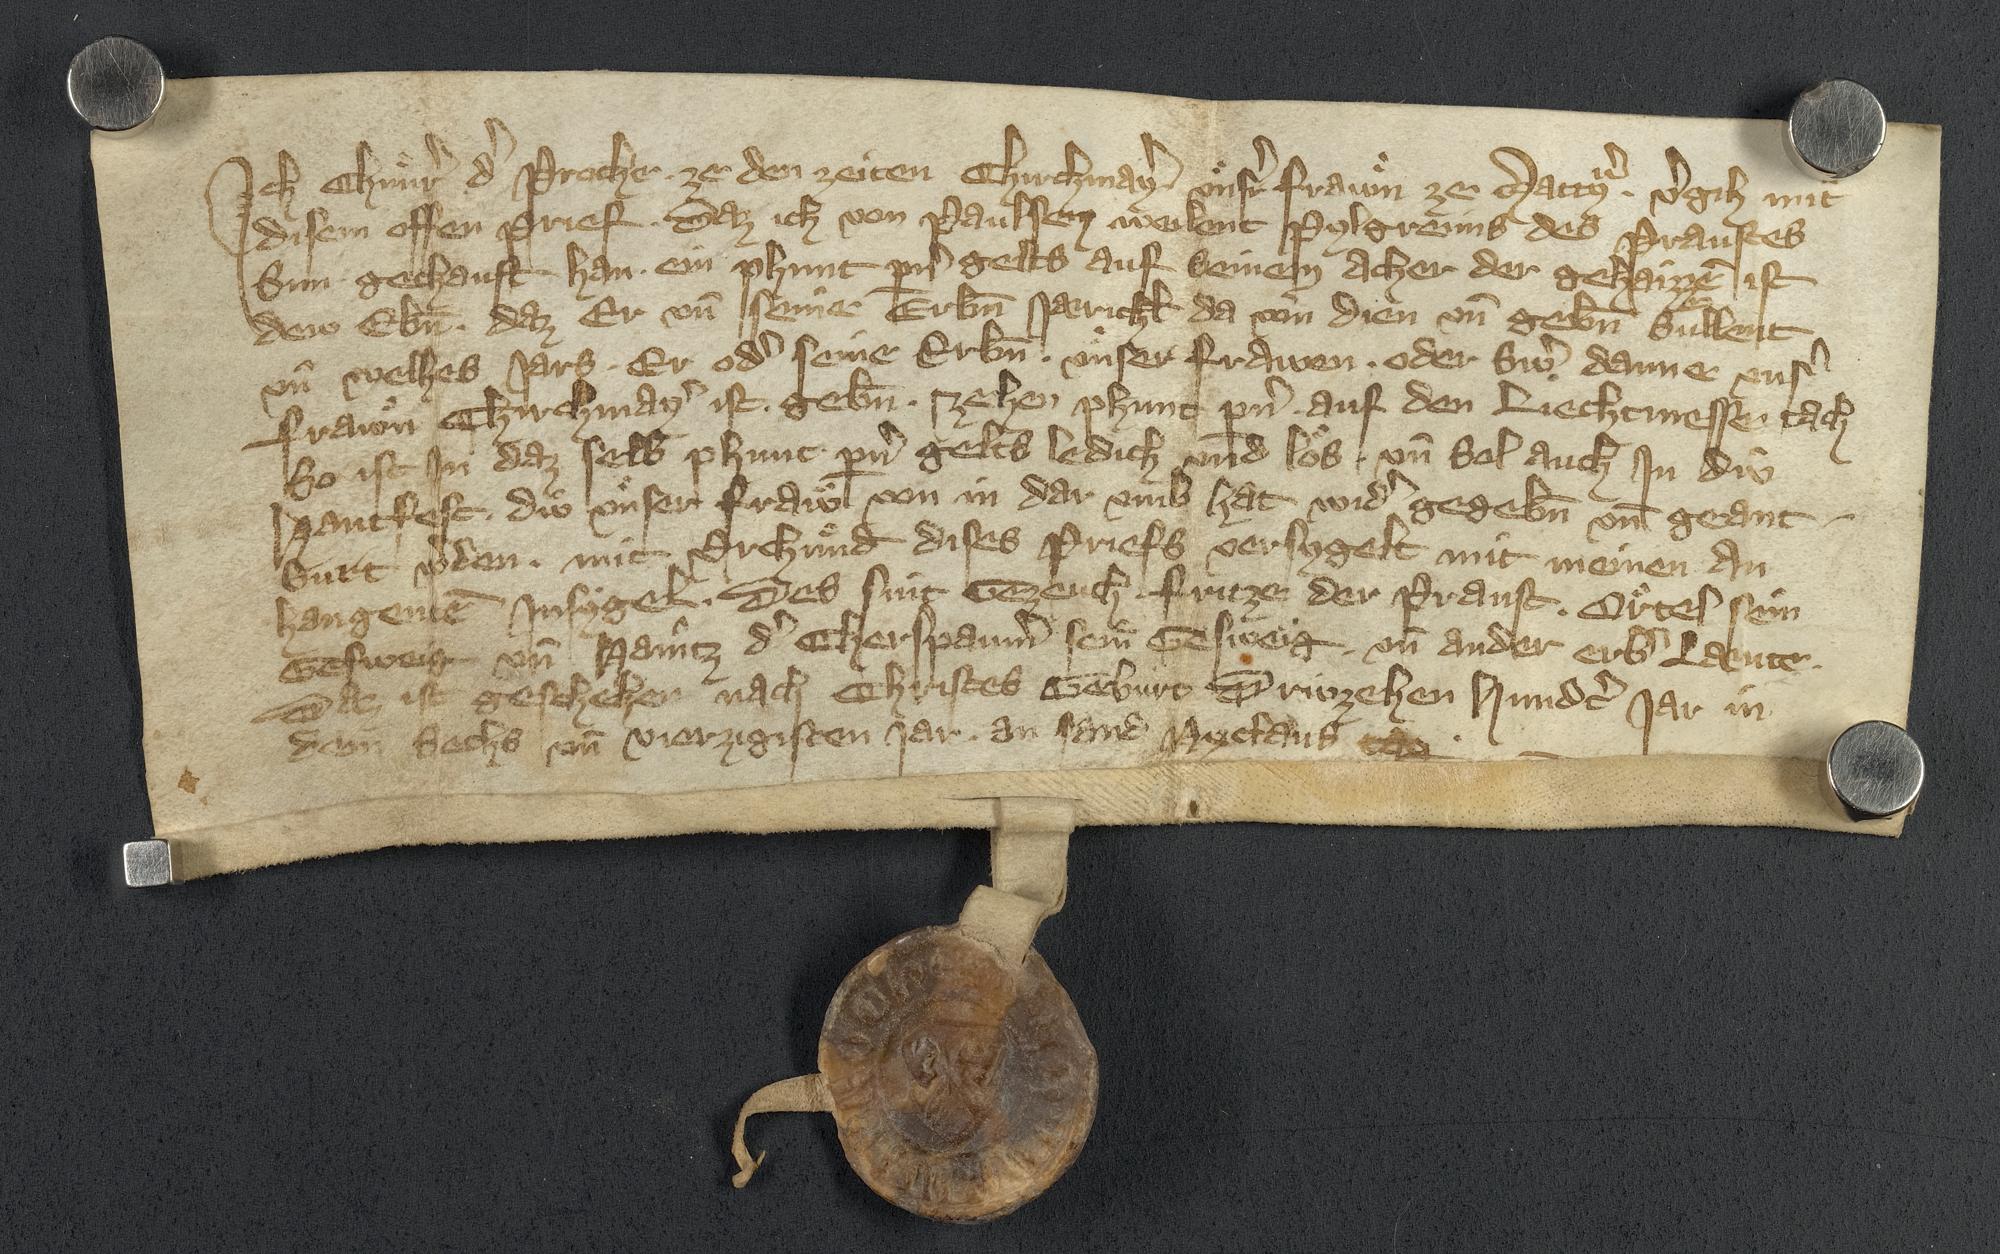 Ich Chunr̄ d' Procher. ze den zeiten Chirchmay' uͤnsr̄ frawͦn ze Matty'. v'gih mit
disem offen prief. Daz ich von Paulsen weilent Pylgreims des Praustes
Sun gechauft han. ein phunt pn̄ gelts auf seinem Acher der gehaizzē ist
dew Ebn̄. daz Er vn̄ seine Erbn̄ Jaerichl da von dien vn̄ gebn̄ suͤllent
vn̄ welhes Jars. Er od' seine Erbn̄. uͤnser frawen. oder Sw'. danne uns'
frawͦn Chirchmay' ist. gebn̄. zehen phunt pn̄. auf den Liechtmesse tach
So ist In daz selb phunt pn̄ gelts ledich vnd loͤs. vn̄ Sol auch In diͤv
Hantfest. diͤv uͤnser frawͦ von in dar vmb hat wid' gegebn̄ vn̄ geant-
Surt w'den. mit Vrchuͤnd dises Priefs versygelt mit meinen An
hangentē Insygel. Des sint Gezeuch. fritze der Praust. Oͤrtel sein
Gesweig vn̄ Haintz d' Cherspaum' sein Gesweig. vn̄ ander erb' Laeute.
Daz ist geschehen nach Christes Geburt Driͤvzehen Hundt' Jar in
dem Sechs vn̄ vierzigisten Jar. an sand Nyclaus tag.